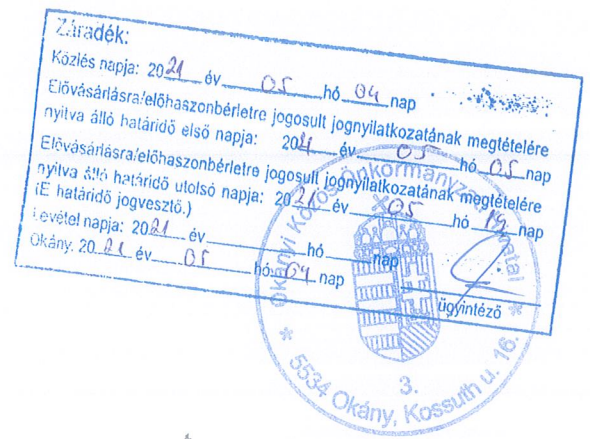 Záradék:
Közlés napja: 2021 év 05 hó 04 nap
Elővásárlásra/előhaszonbérletre jogosult jognyilatkozatának megtételére
nyitva álló határidő első napja: 2021 év 05 hó 05 nap
Elővásárlásra/előhaszonbérletre jogosult jognyilatkozatának megtételére
nyitva álló határidő utolsó napja: 2021 év 05 hó 19 nap
(E határidő jogvesztő.)
Levétel napja: 2021 év hó nap
Okány. 2021 év 05 hó 04 nap
ügyintéző
Okányi Közös Önkormányzati Hivatal
3.
* 5534 Okány, Kossuth u. 16. *